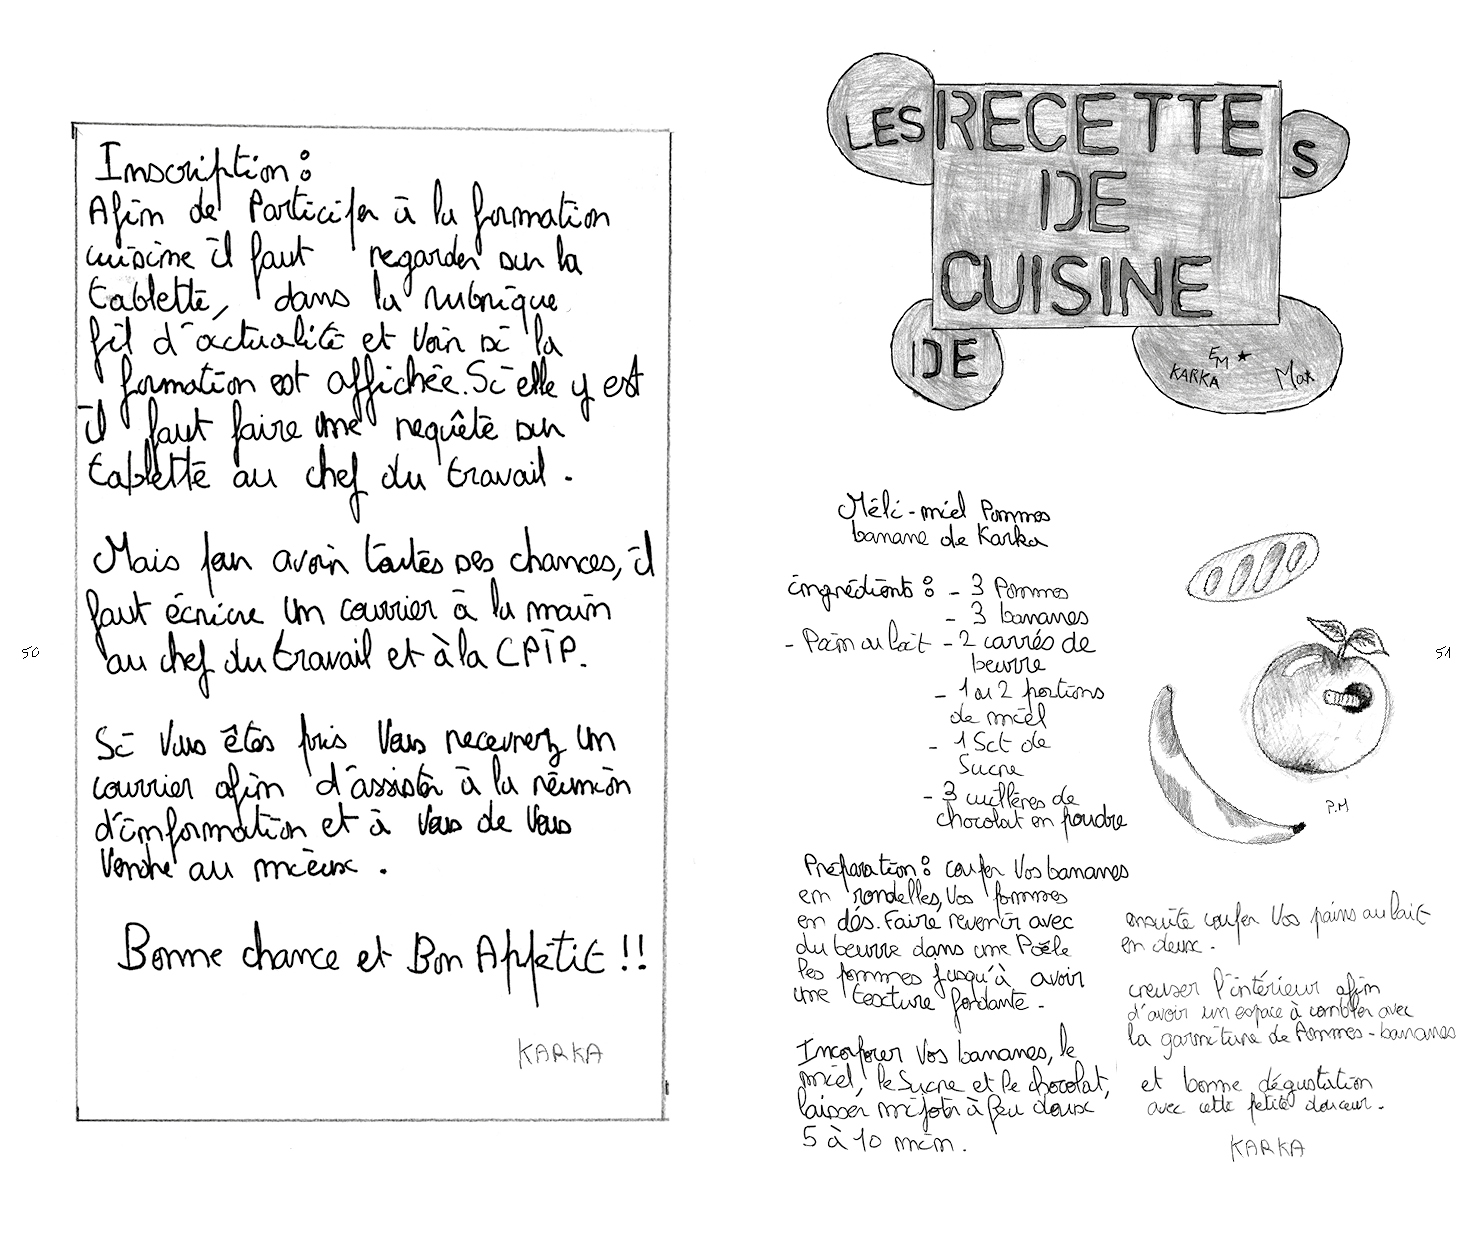 Inscription :
Afin de Participer à la formation
cuisine il faut regarder sur la
tablette, dans la rubrique
fil d'actualité et voir si la
formation est affichée. Si elle y est
il faut faire une requête sur
tablette au chef du travail.
Mais pour avoir toutes ses chances, il
faut écrire un courrier à la main
au chef du travail et à la CPIP.
Si vous êtes pris vous recevrez un
courrier afin d'assister à la réunion
d'information et à vous de vous
vendre au mieux.
Bonne chance et Bon Appétit !!
KARKA
50
LES RECETTES
DE
CUISINE
DE
KARKA EM ★ Max
Méli-miel Pommes
banane de Karka
ingrédients : - 3 Pommes
- 3 bananes
- Pain au lait - 2 carrés de
beurre
- 1 ou 2 portions
de miel
- 1 Sct de
Sucre
- 3 cuillères de
chocolat en poudre
P.M
51
Préparation : couper vos bananes
en rondelles, vos pommes
en dés. Faire revenir avec
du beurre dans une Poêle
les pommes jusqu'à avoir
une texture fondante.
Incorporer vos bananes, le
miel, le Sucre et le chocolat,
laisser mijoter à feu doux
5 à 10 min.
ensuite couper vos pains au lait
en deux.
creuser l'intérieur afin
d'avoir un espace à combler avec
la garniture de Pommes-bananes
et bonne dégustation
avec cette petite douceur.
KARKA